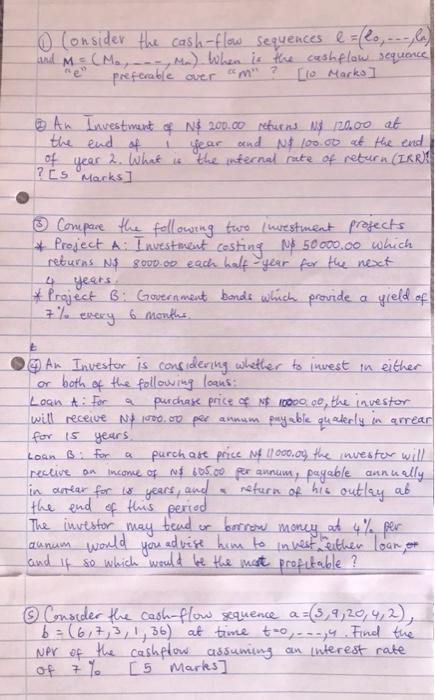 ① Consider the cash-flow sequences e = (e0, ---, en)
and M = (M0, ---, Mn) When is the cashflow sequence
"e" preferable over "m" ? [10 Marks]
② An Investment of N$ 200.00 returns N$ 120.00 at
the end of 1 year and N$ 100.00 at the end
of year 2. What is the internal rate of return (IRR)
? [5 Marks]
③ Compare the following two investment projects
* Project A: Investment costing N$ 50000.00 which
returns N$ 8000.00 each half-year for the next
4 years.
* Project B: Government bonds which provide a yield of
7% every 6 months.
④ An Investor is considering whether to invest in either
or both of the following loans:
Loan A: For a purchase price of N$ 10000.00, the investor
will receive N$ 1000.00 per annum payable quaterly in arrear
for 15 years.
Loan B: for a purchase price N$ 11000.00 the investor will
receive an income of N$ 605.00 per annum, payable annually
in arrear for 18 years, and a return of his outlay at
the end of this period
The investor may lend or borrow money at 4% per
annum would you advise him to invest in either loan, or
and if so which would be the most profitable ?
⑤ Consider the cash-flow sequence a = (5,9,20,4,2),
b = (6,7,3,1,36) at time t=0,---,4. Find the
NPV of the cashflow assuming an interest rate
of 7% [5 Marks]